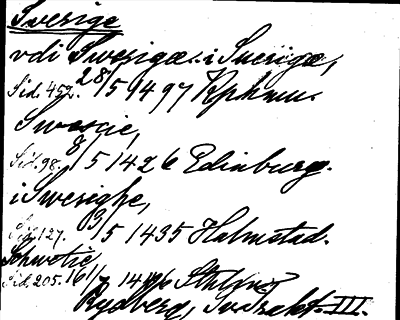 Sverige
vdi Swerigæ. i Sueriige,
Sid. 452. 28/5 1497 Kphmn.
Swecie,
Sid. 98. 8/5 1426 Edinburg.
i Swerighe,
Sid. 127. 3/5 1435 Halmstad.
Schwetie,
Sid. 205. 16/7
Rydberg, Sv. Trakt. III.